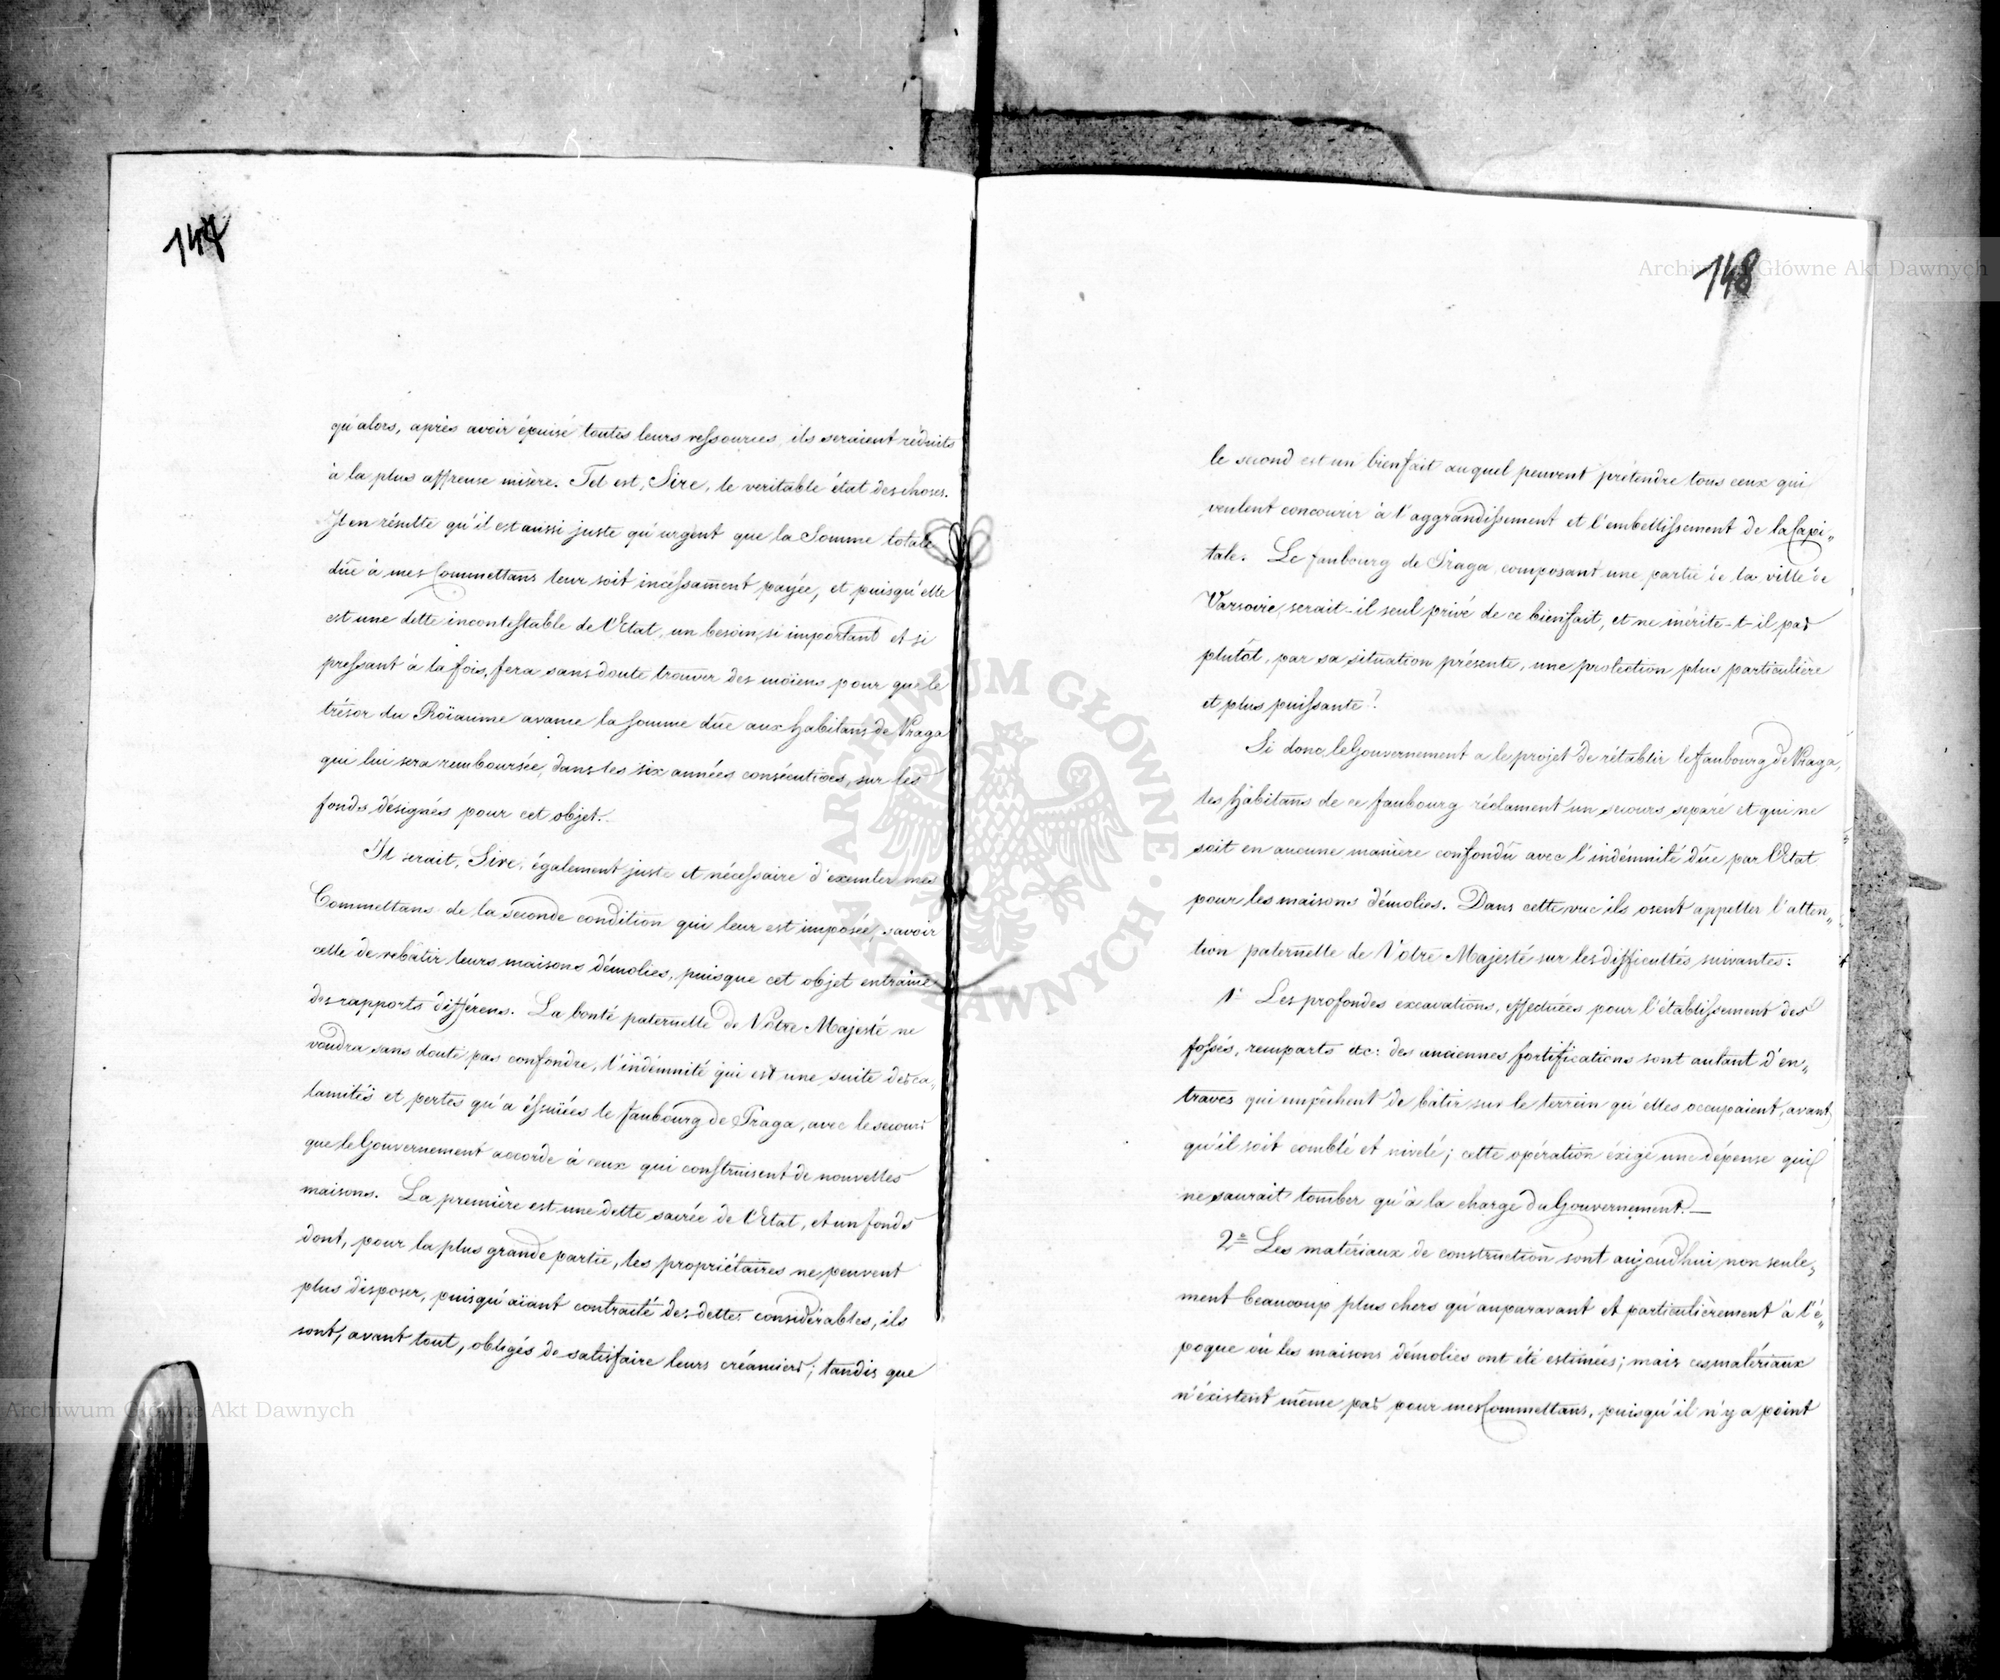 147
qu'alors, après avoir épuisé toutes leurs ressources, ils seraient réduits
à la plus affreuse misère. Tel est, Sire, le veritable état des choses.
Il en résulte qu'il est aussi juste qu'urgent que la Somme totale
dûe à mes Commettans leur soit incéssament payée, et puisqu'elle
est une dette incontestable de l'Etat, un besoin, si important et si
pressant à la fois, fera sans doute trouver des moïens pour que le
trésor du Roïaume avance la somme dûe aux habitans de Praga
qui lui sera remboursée, dans les six années consécutives, sur les
fonds désignés pour cet objet.
Il serait, Sire, également juste et nécessaire d'exemter mes
Commettans de la seconde condition qui leur est imposée, savoir
celle de rebâtir leurs maisons démolies, puisque cet objet entraine
des rapports différens. La bonté paternelle de Votre Majesté ne
voudra sans doute pas confondre, l'indémnité qui est une suite des ca-
lamités et pertes qu'a éssuiées le faubourg de Praga, avec le secours
que le Gouvernement accorde à ceux qui construisent de nouvelles
maisons. La première est une dette sacrée de l'Etat, et un fonds
dont, pour la plus grande partie, les propriétaires ne peuvent
plus disposer, puisqu'aïant contracté des dettes considérables, ils
sont, avant tout, obligés de satisfaire leurs créanciers; tandis que
148
le second est un bienfait auquel peuvent prétendre tous ceux qui
veulent concourir à l'aggrandissement et l'embellissement de la Capi„
tale. Le faubourg de Praga, composant une partie de la ville de
Varsovie, serait-il seul privé de ce bienfait, et ne mérite-t-il pas
plutôt, par sa situation présente, une protection plus particulière
et plus puissante?
Si donc le Gouvernement a le projet de rétablir le faubourg de Praga,
les habitans de ce faubourg réclament un secours separé et qui ne
soit en aucune manière confondû avec l'indémnité dûe par l'Etat
pour les maisons démolies. Dans cette vue ils osent appeller l'atten„
tion paternelle de Votre Majesté sur les difficultés suivantes:
1° Les profondes excavations, effectuées pour l'établissement des
fossés, remparts etc: des anciennes fortifications sont autant d'en„
traves qui empêchent de bâtir sur le terrein qu'elles occupaient, avant
qu'il soit comblé et nivelé; cette opération éxige une dépense qui
ne saurait tomber qu'à la charge du Gouvernement.—
2° Les matériaux de construction sont aujourd'hui non seule„
ment beaucoup plus chers qu'auparavant et particulièrement à l'é„
poque où les maisons démolies ont été estimées; mais ces matériaux
n'éxistent même pas pour mes Commettans, puisqu'il n'y a point
Archiwum Główne Akt Dawnych
Archiwum Główne Akt Dawnych
ARCHIWUM GŁÓWNE AKT DAWNYCH